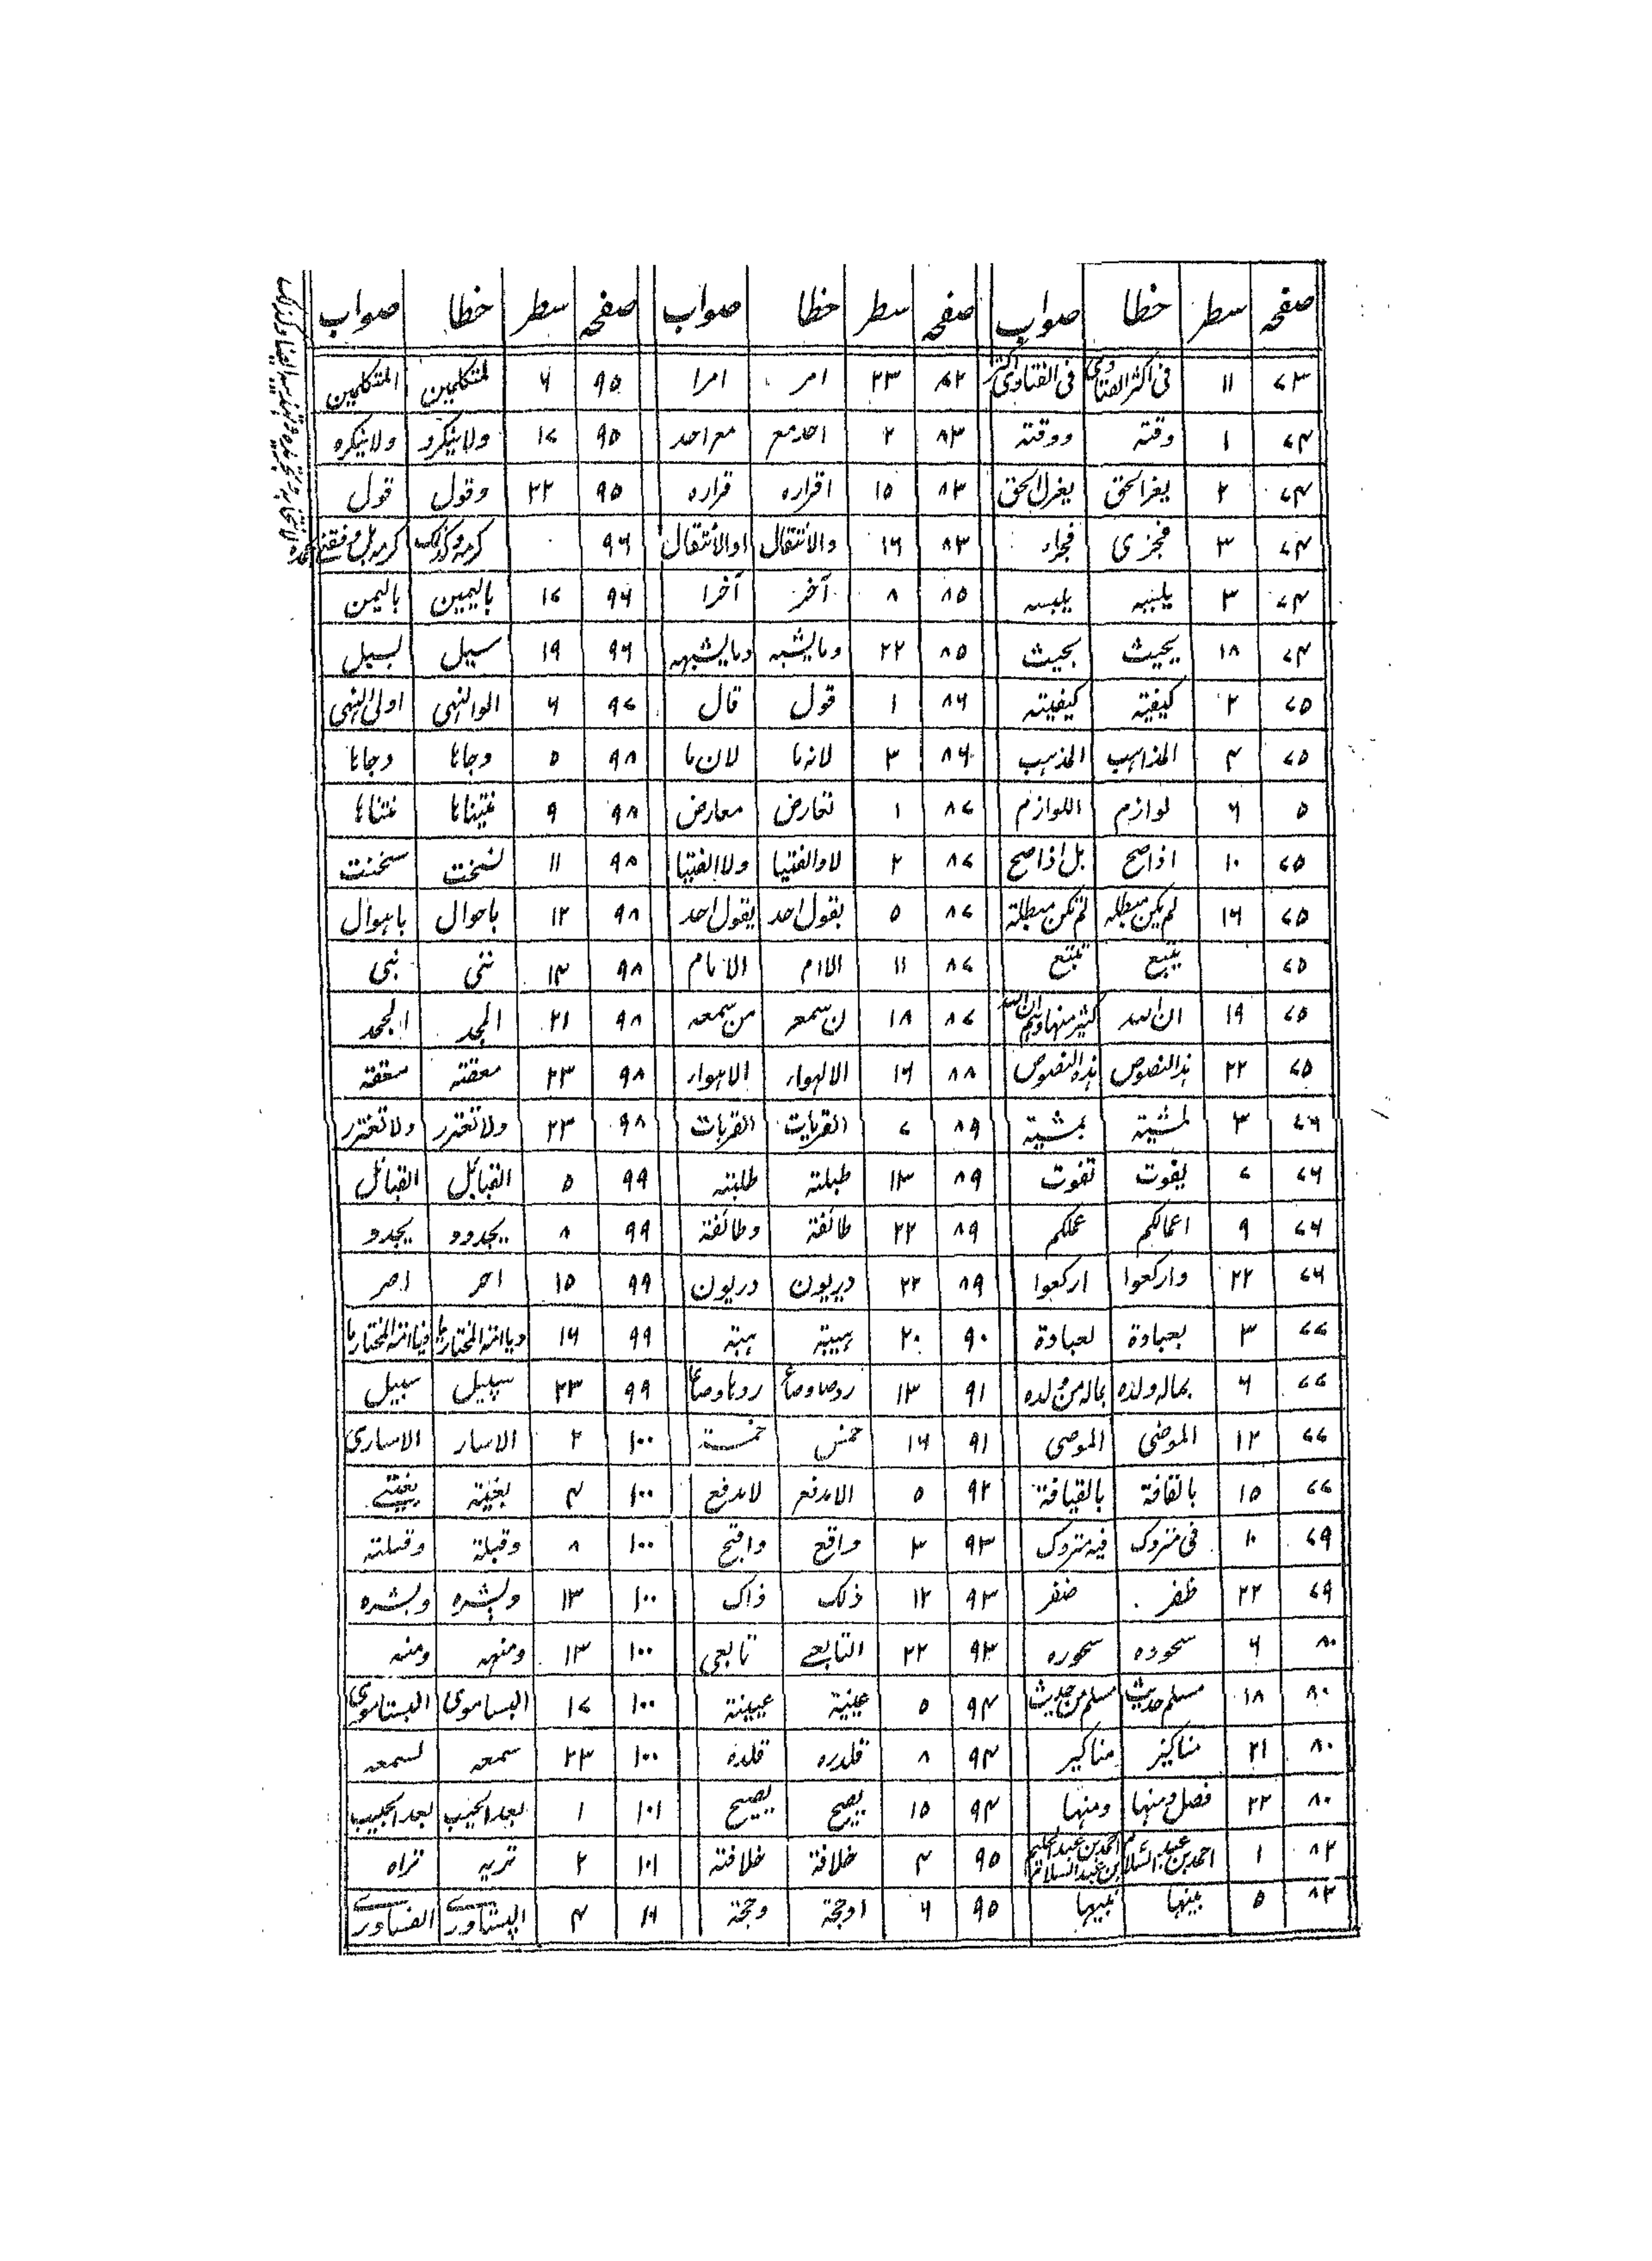 صفحہ سطر خطا صواب صفحہ سطر خطا صواب صفحہ سطر خطا صواب
۷۳ ۱۱ فی اکثر الفتاوی فی الفتاوی اکثر ۸۲ ۲۳ امر امرا ۹۵ ۶ لمتکلمین المتکلمین
۷۴ ۱ وقتہ ووقتہ ۸۳ ۲ احد مع مع احد ۹۵ ۱۷ ولاینکرو ولاینکرہ
۷۴ ۲ یغر الحق یغرک الحق ۸۳ ۱۵ اقرارہ قرارہ ۹۵ ۲۲ وقول قول
۷۴ ۳ فجزی فجزاء ۸۳ ۱۶ والانتقال اوالانتقال ۹۶
۷۴ ۳ یلبیہ یلبسہ ۸۵ ۸ آخر آخرا ۹۶ ۱۷ بالیمین بالیمن
۷۴ ۱۸ یحیث بحیث ۸۵ ۲۲ ومایشبہ ومایشبہہ ۹۶ ۱۹ سبیل لسبیل
۷۵ ۲ کیفیۃ کیفیتہ ۸۶ ۱ قول قال ۹۷ ۶ الوالنہی اولی النہی
۷۵ ۴ المذاہب المذہب ۸۶ ۳ لانہما لان ما ۹۸ ۵ وجانا وجانا
۵ ۶ لوازم اللوازم ۸۷ ۱ تعارض معارض ۹۸ ۹
۷۵ ۱۰ اذا صح بل اذا صح ۸۷ ۲ لاوالفتیا ولا الفتیا ۹۸ ۱۱ لسخت سخنت
۷۵ ۱۶ لم یکن مبطلہ لم تکن مبطلۃ ۸۷ ۵ بقول احد یقول احد ۹۸ ۱۲ باحوال باہوال
۷۵ یتبع تتبع ۸۷ ۱۱ الاام الامام ۹۸ ۱۴ ننی نبی
۷۵ ۱۹ ان اللہ ۸۷ ۱۸ ن سمعہ من سمعہ ۹۸ ۲۱ المجد الجحد
۷۵ ۲۲ ہذا النصوص ہذہ النصوص ۸۸ ۱۶ الالہواء الاہواء ۹۸ ۲۳ معقتہ
۷۶ ۳ لمشیۃ بمشیۃ ۸۹ ۷ القربایت القربات ۹۸ ۲۳ ولاتغترر ولاتغترر
۷۶ ۷ یفوت تفوت ۸۹ ۱۳ طبلتہ طلبتہ ۹۹ ۵ القبایل القبائل
۷۶ ۹ اعمالکم عملکم ۸۹ ۲۲ طائفۃ وطائفۃ ۹۹ ۸ یجددو یجدو
۷۶ ۲۲ وارکعوا ارکعوا ۸۹ ۲۲ دیریون دریون ۹۹ ۱۵ احر اصر
۷۷ ۳ بعبادۃ لعبادۃ ۹۰ ۲۰ ہیبۃ ہبۃ ۹۹ ۱۶
۷۷ ۶ بمالہ ولدہ بمالہ من ولدہ ۹۱ ۱۳ ۹۹ ۲۳ سپیل سبیل
۷۷ ۱۲ الموضی الموصی ۹۱ ۱۶ خمس خمسۃ ۱۰۰ ۲ الاسار الاساری
۷۷ ۱۵ بالقافۃ بالقیافۃ ۹۲ ۵ الاندفع لاندفع ۱۰۰ ۴
۷۹ ۱۰ فی متروک فیہ متروک ۹۳ ۳ واقع واقبح ۱۰۰ ۸ وقبلۃ وقبلتہ
۷۹ ۲۲ ظفر ضفر ۹۳ ۱۲ ذلک ذاک ۱۰۰ ۱۳ وبشرہ وبشرہ
۸۰ ۶ سحودہ سحورہ ۹۳ ۲۲ التابعے تابعی ۱۰۰ ۱۳ ومنہہ ومنہ
۸۰ ۱۸ مسلم حدیث مسلم من حدیث ۹۴ ۵ عینیۃ عیینۃ ۱۰۰ ۱۷ البساموی البستاموی
۸۰ ۲۱ مناکیز مناکیر ۹۴ ۸ قلدرہ قلدہ ۱۰۰ ۲۳ سمعہ لسمعہ
۸۰ ۲۲ فصل ومنہا ومنہا ۹۴ ۱۵ یصح یصیح ۱۰۱ ۱ بعد الحبیب بعد الجبیب
۸۲ ۱ احمد بن عبد السلام احمد بن عبد الحلیم بن عبد السلام ۹۵ ۴ خلافۃ خلافتہ ۱۰۱ ۲ تریہ تراہ
۸۲ ۵ بینہا نبیہا ۹۵ ۶ اوحجۃ وحجۃ ۱۰۱ ۴ البشاورے